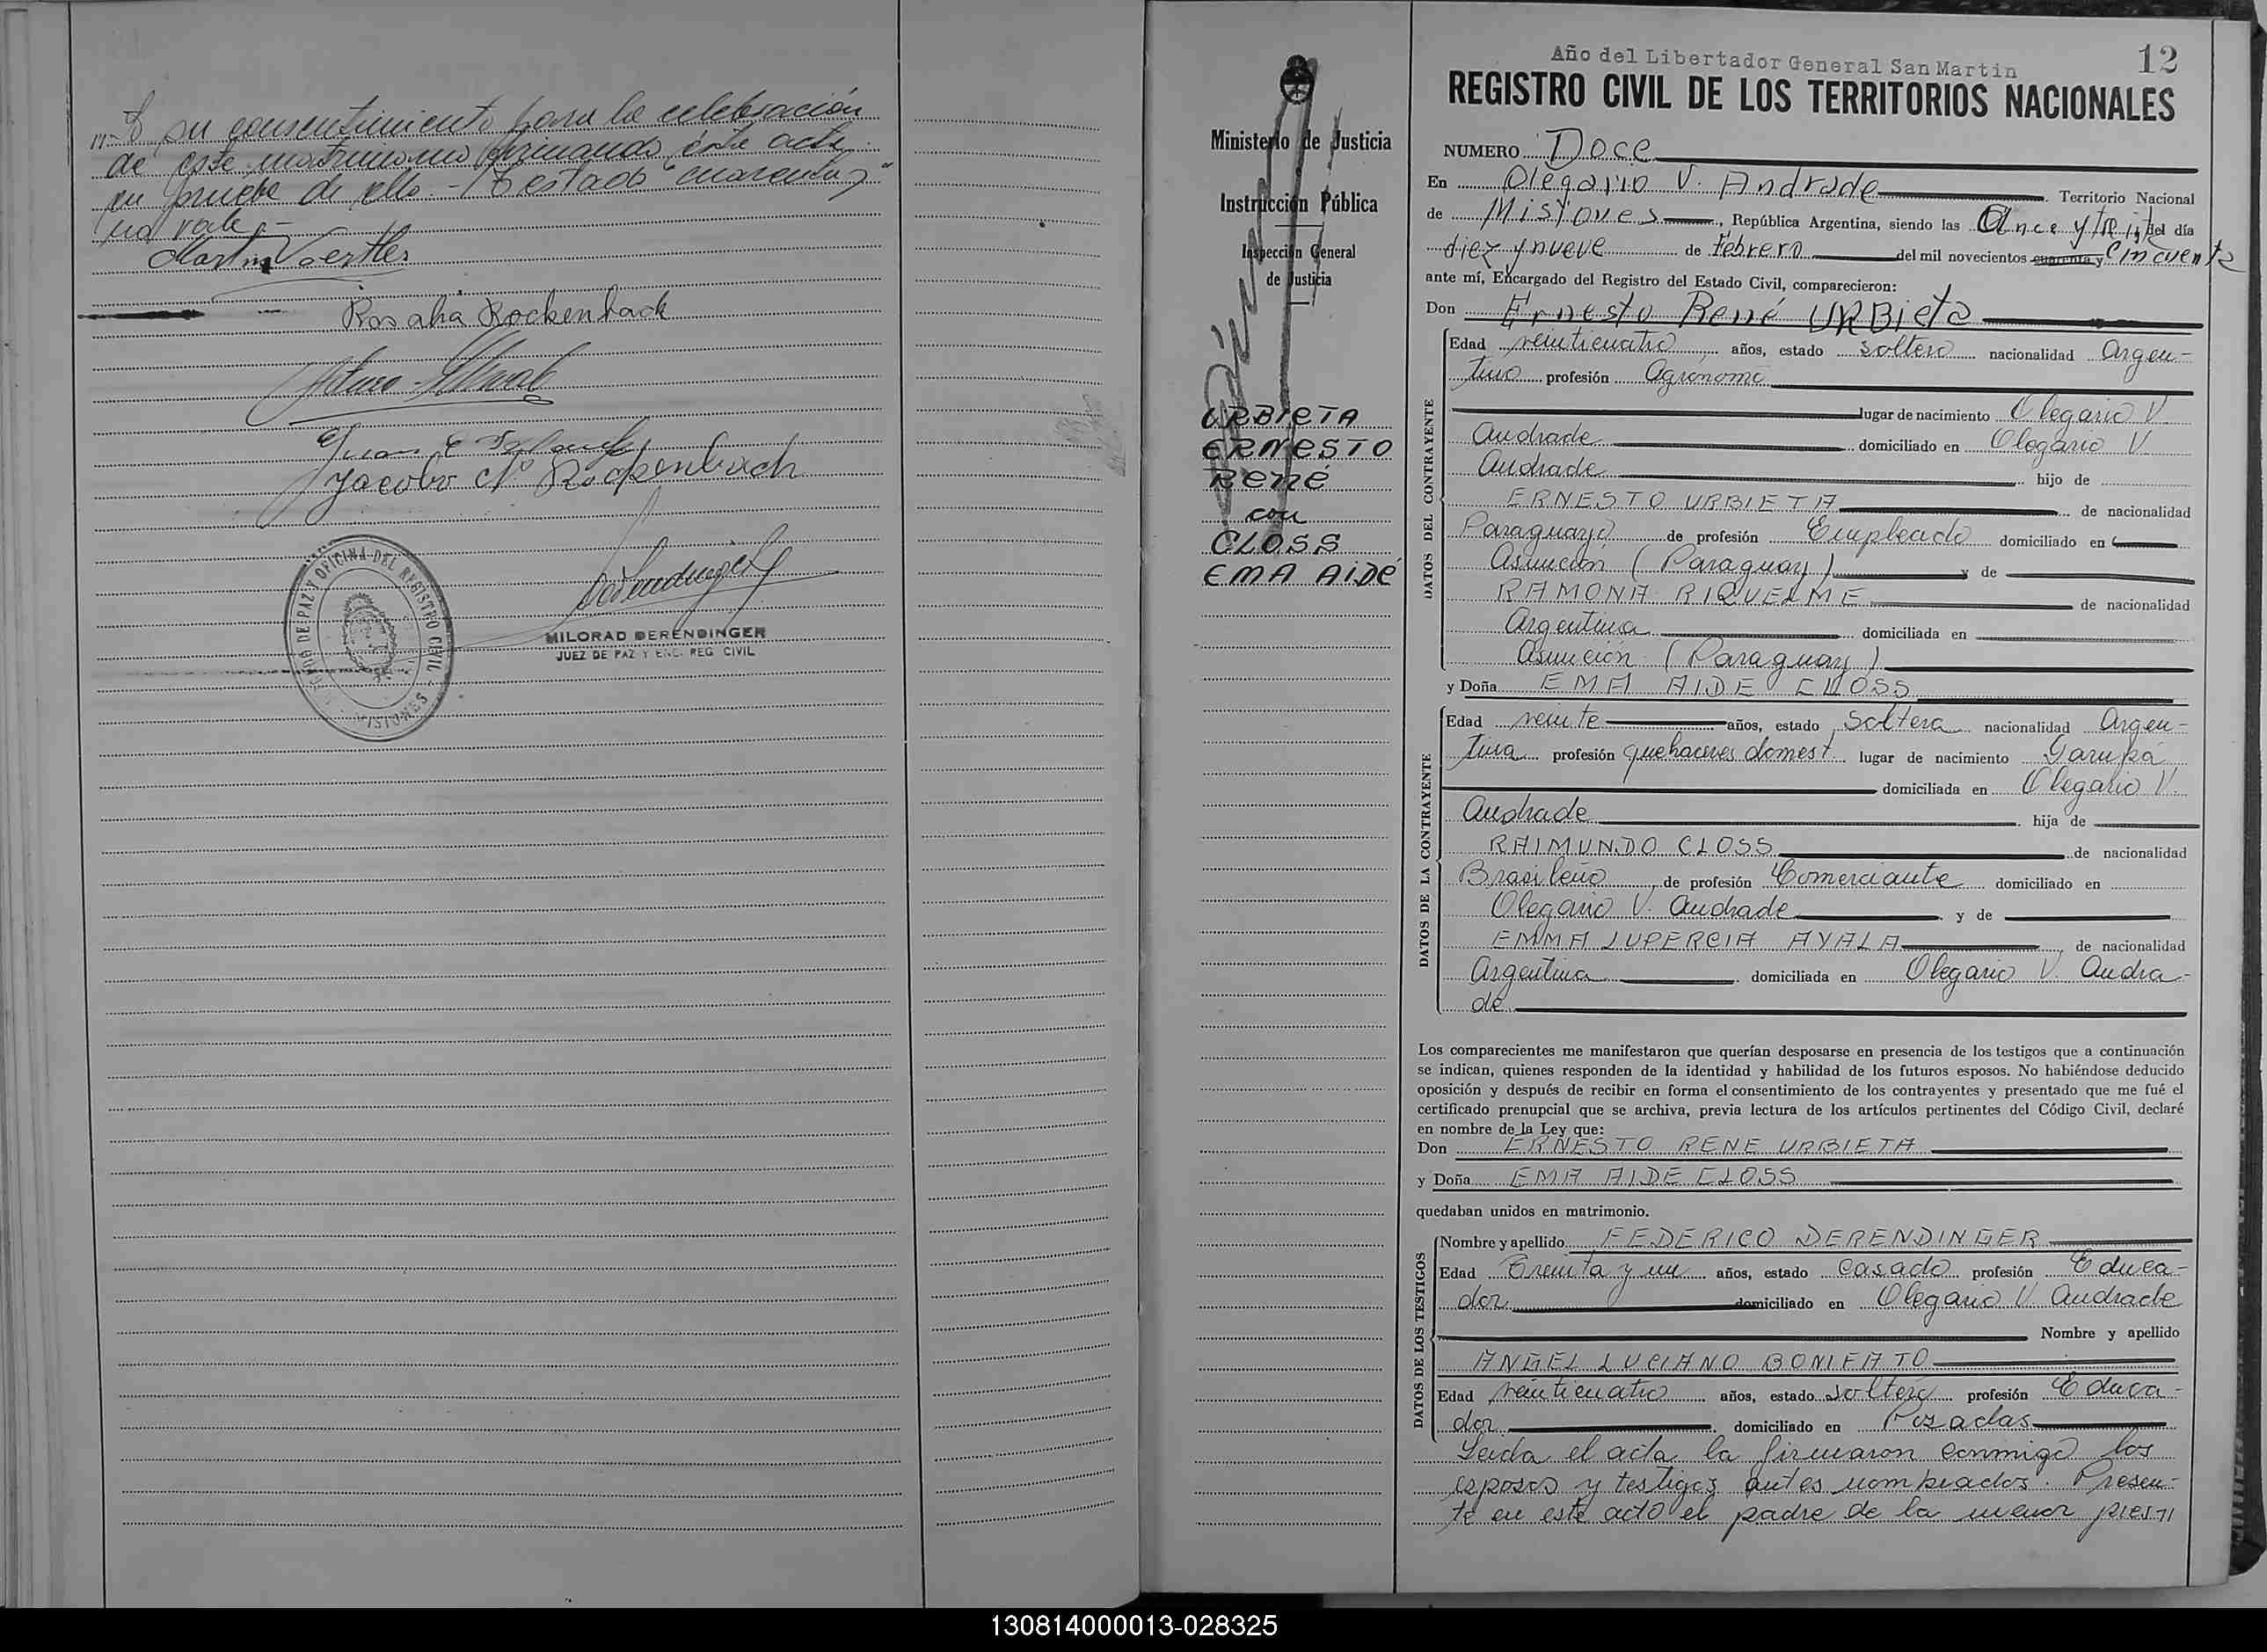 su consentimiento para la celebración
de este matrimonio firmando éste acta
en prueba de ello.- Testado "cuarenta y"
no vale.-
Martin
Rosalia Rockenback
Arturo
Juan E
Jacobo N. Rockenbach
DE PAZ Y OFICINA DEL REGISTRO CIVIL
MISIONES
MILORAD DERENDINGER
JUEZ DE PAZ Y ENC. REG CIVIL
Ministerio de Justicia
Instrucción Pública
Inspección General
de Justicia
URBIETA
ERNESTO
René
con
CLOSS
EMA AIDÉ
Año del Libertador General San Martin
12
REGISTRO CIVIL DE LOS TERRITORIOS NACIONALES
NUMERO Doce
En Olegario V. Andrade Territorio Nacional
de Misiones, República Argentina, siendo las Once y tre del día
diez y nueve de Febrero del mil novecientos cuarenta y Cincuenta
ante mí, Encargado del Registro del Estado Civil, comparecieron:
Don Ernesto René URBieta
DATOS DEL CONTRAYENTE
Edad veinticuatro años, estado soltero nacionalidad Argen-
tino profesión Agronomo
lugar de nacimiento Olegario V.
Andrade domiciliado en Olegario V.
Andrade hijo de
ERNESTO URBIETA de nacionalidad
Paraguayo de profesión Empleado domiciliado en
Asunción (Paraguay) y de
RAMONA RIQUELME de nacionalidad
Argentina domiciliada en
Asunción (Paraguay)
y Doña EMA AIDE CLOSS
DATOS DE LA CONTRAYENTE
Edad veinte años, estado soltera nacionalidad Argen-
tina profesión quehaceres domest. lugar de nacimiento Garupá
domiciliada en Olegario V.
Andrade hija de
RAIMUNDO CLOSS de nacionalidad
Brasileño de profesión Comerciante domiciliado en
Olegario V. Andrade y de
EMMA LUPERCIA AYALA de nacionalidad
Argentina domiciliada en Olegario V. Andra-
de
Los comparecientes me manifestaron que querían desposarse en presencia de los testigos que a continuación
se indican, quienes responden de la identidad y habilidad de los futuros esposos. No habiéndose deducido
oposición y después de recibir en forma el consentimiento de los contrayentes y presentado que me fué el
certificado prenupcial que se archiva, previa lectura de los artículos pertinentes del Código Civil, declaré
en nombre de la Ley que:
Don ERNESTO RENE URBIETA
y Doña EMA AIDE CLOSS
quedaban unidos en matrimonio.
DATOS DE LOS TESTIGOS
Nombre y apellido FEDERICO DERENDINGER
Edad Treinta y un años, estado casado profesión Educa-
dor domiciliado en Olegario V. Andrade
Nombre y apellido
ANGEL LUCIANO BONIFATO
Edad veinticuatro años, estado soltero profesión Educa-
dor domiciliado en Posadas
Leida el acta la firmaron conmigo los
esposos y testigos antes nombrados. Presen-
te en este acto el padre de la menor prest
130814000013-028325